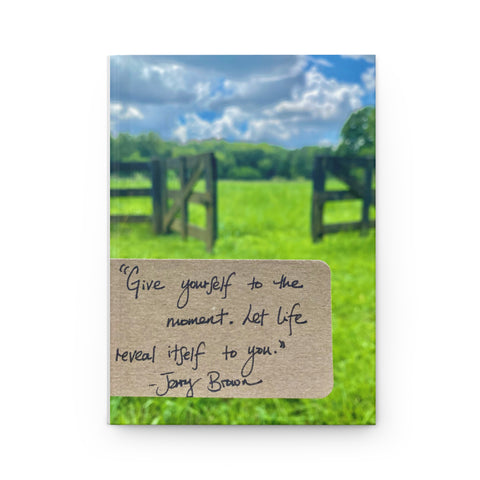 "Give yourself to the
moment. Let life
reveal itself to you."
-Jerry Brown